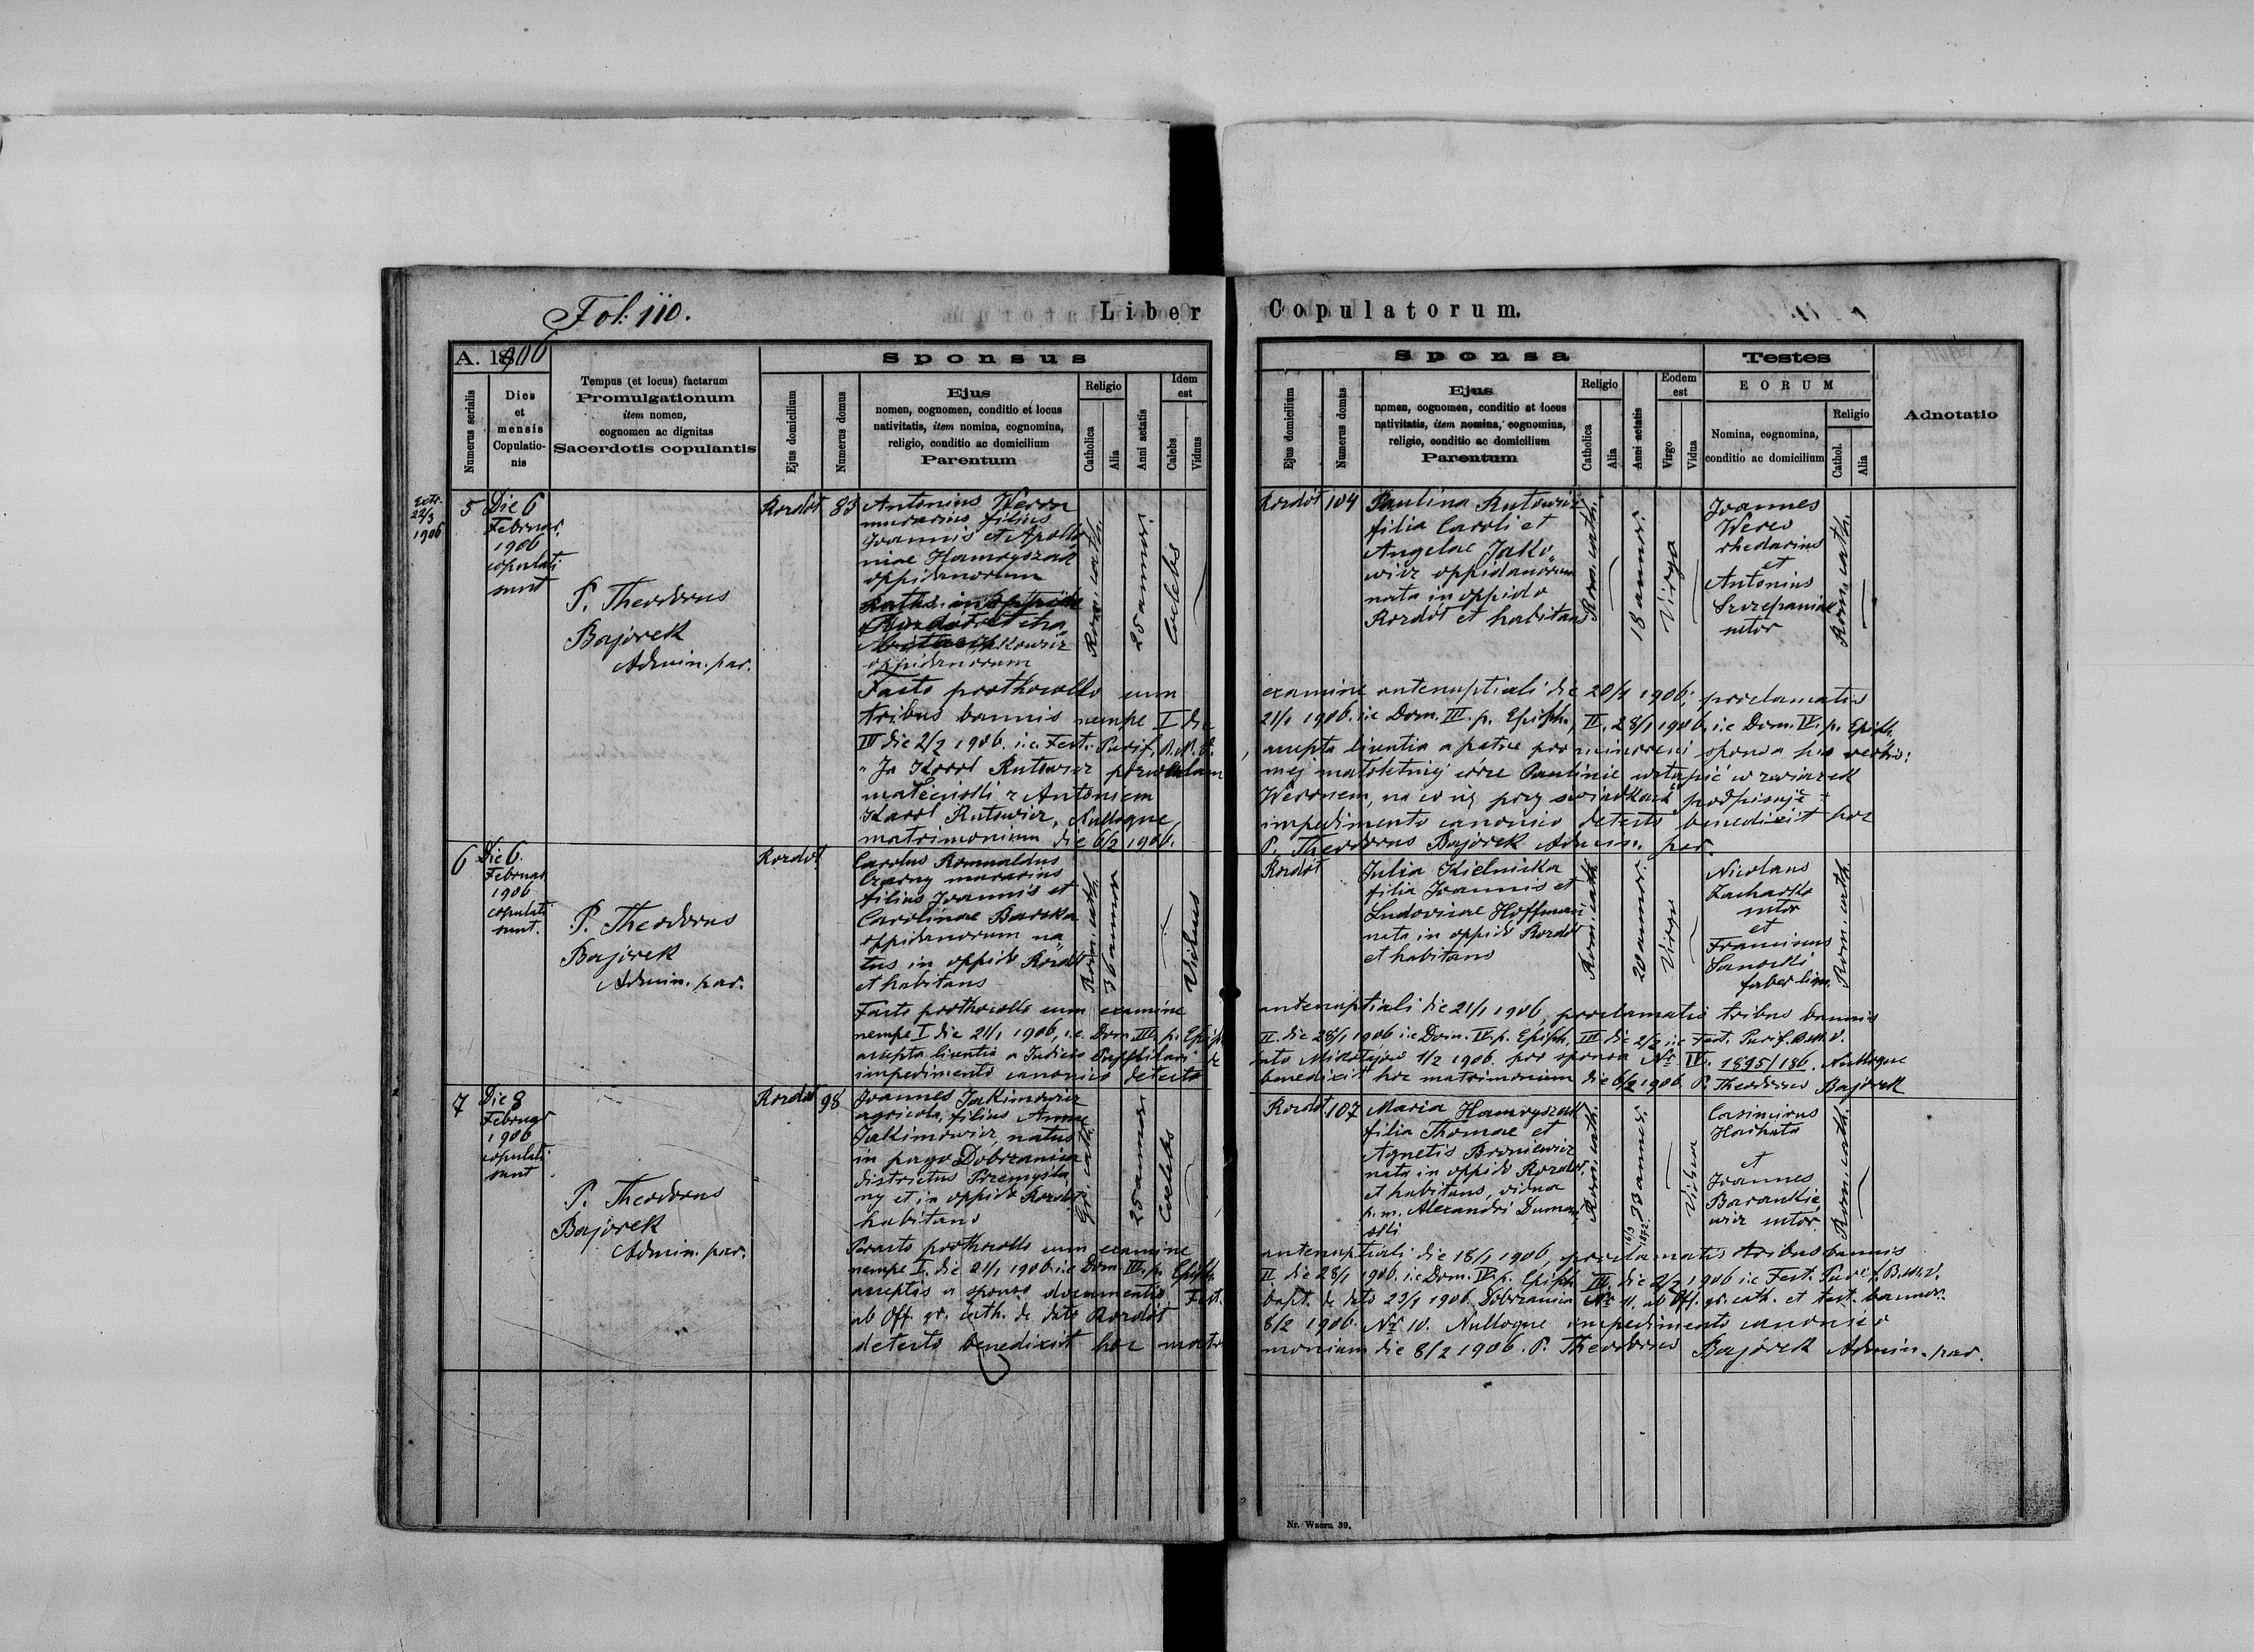 Fol: 110.
Liber Copulatorum.
A. 1906
Numerus serialis
Dies et mensis Copulatio-nis
Tempus (et locus) factarum
Promulgationum
item nomen,
cognomen ac dignitas
Sacerdotis copulantis
Sponsus
Ejus domicilium
Numerus domus
Ejus
nomen, cognomen, conditio et locus
nativitatis, item nomina, cognomina,
religio, conditio ac domicilium
Parentum
Religio
Catholica
Alia
Anni aetatis
Idem est
Calebs
Viduus
Sponsa
Ejus domicilium
Numerus domus
Ejus
nomen, cognomen, conditio et locus
nativitatis, item nomina, cognomina,
religio, conditio ac domicilium
Parentum
Religio
Catholica
Alia
Anni aetatis
Eodem est
Virgo
Vidua
Testes
EORUM
Nomina, cognomina,
conditio ac domicilium
Religio
Cathol.
Alia
Adnotatio
extr.
22/3
1906
5
Die 6
Februar.
1906
copulati
sunt
P. Theodorus
Bajorek
Admin. par.
Rozdół
83
Antonius Weron
murarius filius
Joannis et Apollo
niae Hamryszak
oppidanorum
oppidanorum
Rom. cath.
25 annor.
Caelebs
Rozdół
104
Paulina Rutowicz
filia Caroli et
Angelae Jako„
wicz oppidanorum
nata in oppido
Rozdół et habitans
Rom. cath.
18 annor.
Virgo
Joannes
Weres
rhedarius
et
Antonius
Szczepaniak
sutor
Rom. cath.
Facto prothocollo cum examine antenuptiali die 20/1 1906, proclamatis
tribus bannis nempe I die 21/1 1906. i.e Dom. III. p. Epiph., II. 28/1 1906. i.e Dom. IV. p. Epiph.
III die 2/2 1906. i.e. Fest. Purif. B.M.V. accepta licentia a patre pro minorenni sponsa his verbis:
„Ja Karol Rutowicz pozwalam mej małoletniej córce Paulinie wstąpić w związek
małżeński z Antonim Weronem, na co się przy świadkach podpisuję
Karol Rutowicz, Nulloque impedimento canonico detecto benedixit hoc
matrimonium die 6/2 1906. P. Theodorus Bajorek Admin. par.
6
Die 6.
Februar
1906
copulati
sunt.
P. Theodorus
Bajorek
Admin. par.
Rozdół
Carolus Romualdus
Czarny murarius
filius Joannis et
Carolinae Barska
oppidanorum na„
tus in oppido Rozdół
et habitans
Rom. cath.
36 annor
Viduus
Rozdół
Julia Kielnicka
filia Joannis et
Ludovicae Hoffmann
nata in oppido Rozdół
et habitans
Rom. cath.
20 annor.
Virgo
Nicolaus
Zacharko
sutor
et
Franciscus
Sanocki
faber lign.
Rom. cath.
Facto prothocollo cum examine antenuptiali die 21/1 1906, proclamatis tribus bannis
nempe I die 21/1 1906, i.e. Dom. III. p. Epiph. II. die 28/1 1906 i.e Dom. IV. p. Epiph. III die 2/2 i.e Fest. Purif. B.M.V.
accepta licentia a Judicio Pupillari de dato Mikołajów 1/2 1906. pro sponsa Nr IV. 1895/186. Nulloque
impedimento canonico detecto benedixit hoc matrimonium die 6/2 1906 P. Theodorus Bajorek
7
Die 8
Februar
1906
copulati
sunt
P. Theodorus
Bajorek
Admin. par.
Rozdół
98
Joannes Jakimowicz
agricola, filius Annae
Jakimowicz, natus
in pago Dobrzanica
districtus Przemyśla„
ny et in oppido Rozdół
habitans
Gr. cath.
25 annor
Caelebs
Rozdół
107
Maria Hamryszak
filia Thomae et
Agnetis Broniewicz
nata in oppido Rozdół
et habitans, vidua
p. m. Alexandri Duman„
ski
Rom. cath.
33 annor.
Vidua
Casimirus
Hachata
et
Joannes
Barankie„
wicz sutor.
Rom. cath.
Peracto prothocollo cum examine antenuptiali die 18/1 1906, proclamatis tribus bannis
nempe I. die 21/1 1906 i.e Dom. III. p. Epiph. II die 28/1 1906. i.e Dom. IV. p. Epiph. III. die 2/2 1906 i.e Fest. Purif. B.M.V.
acceptis a sponso documentis Test. bapt. de dato 23/1 1906 Dobrzanica Nr 11. ab Off. gr. cath. et test. bannor.
ab Off. gr. cath. de dato Rozdół 8/2 1906. Nr 10. Nulloque impedimento canonico
detecto benedixit hoc matri monium die 8/2 1906. P. Theodorus Bajorek Admin. par.
Nr. Wzoru 39.